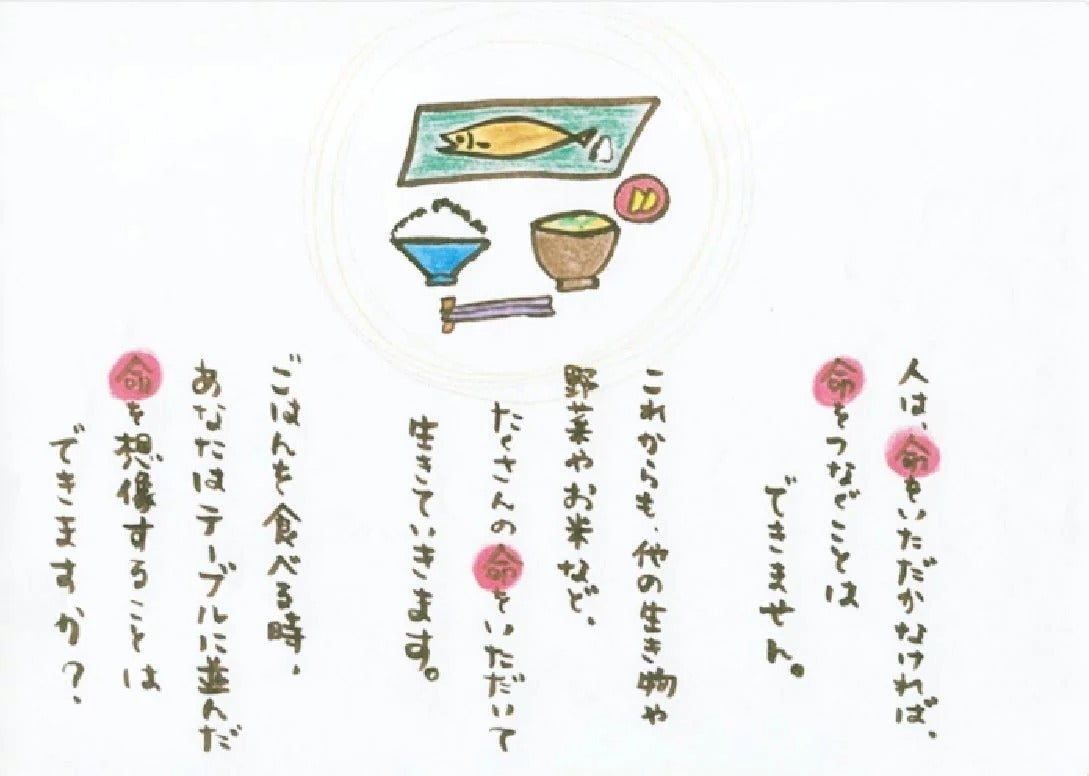 人は、命をいただかなければ、
命をつなぐことは
できません。
これからも、他の生き物や
野菜やお米など、
たくさんの命をいただいて
生きていきます。
ごはんを食べる時、
あなたはテーブルに並んだ
命を想像することは
できますか？